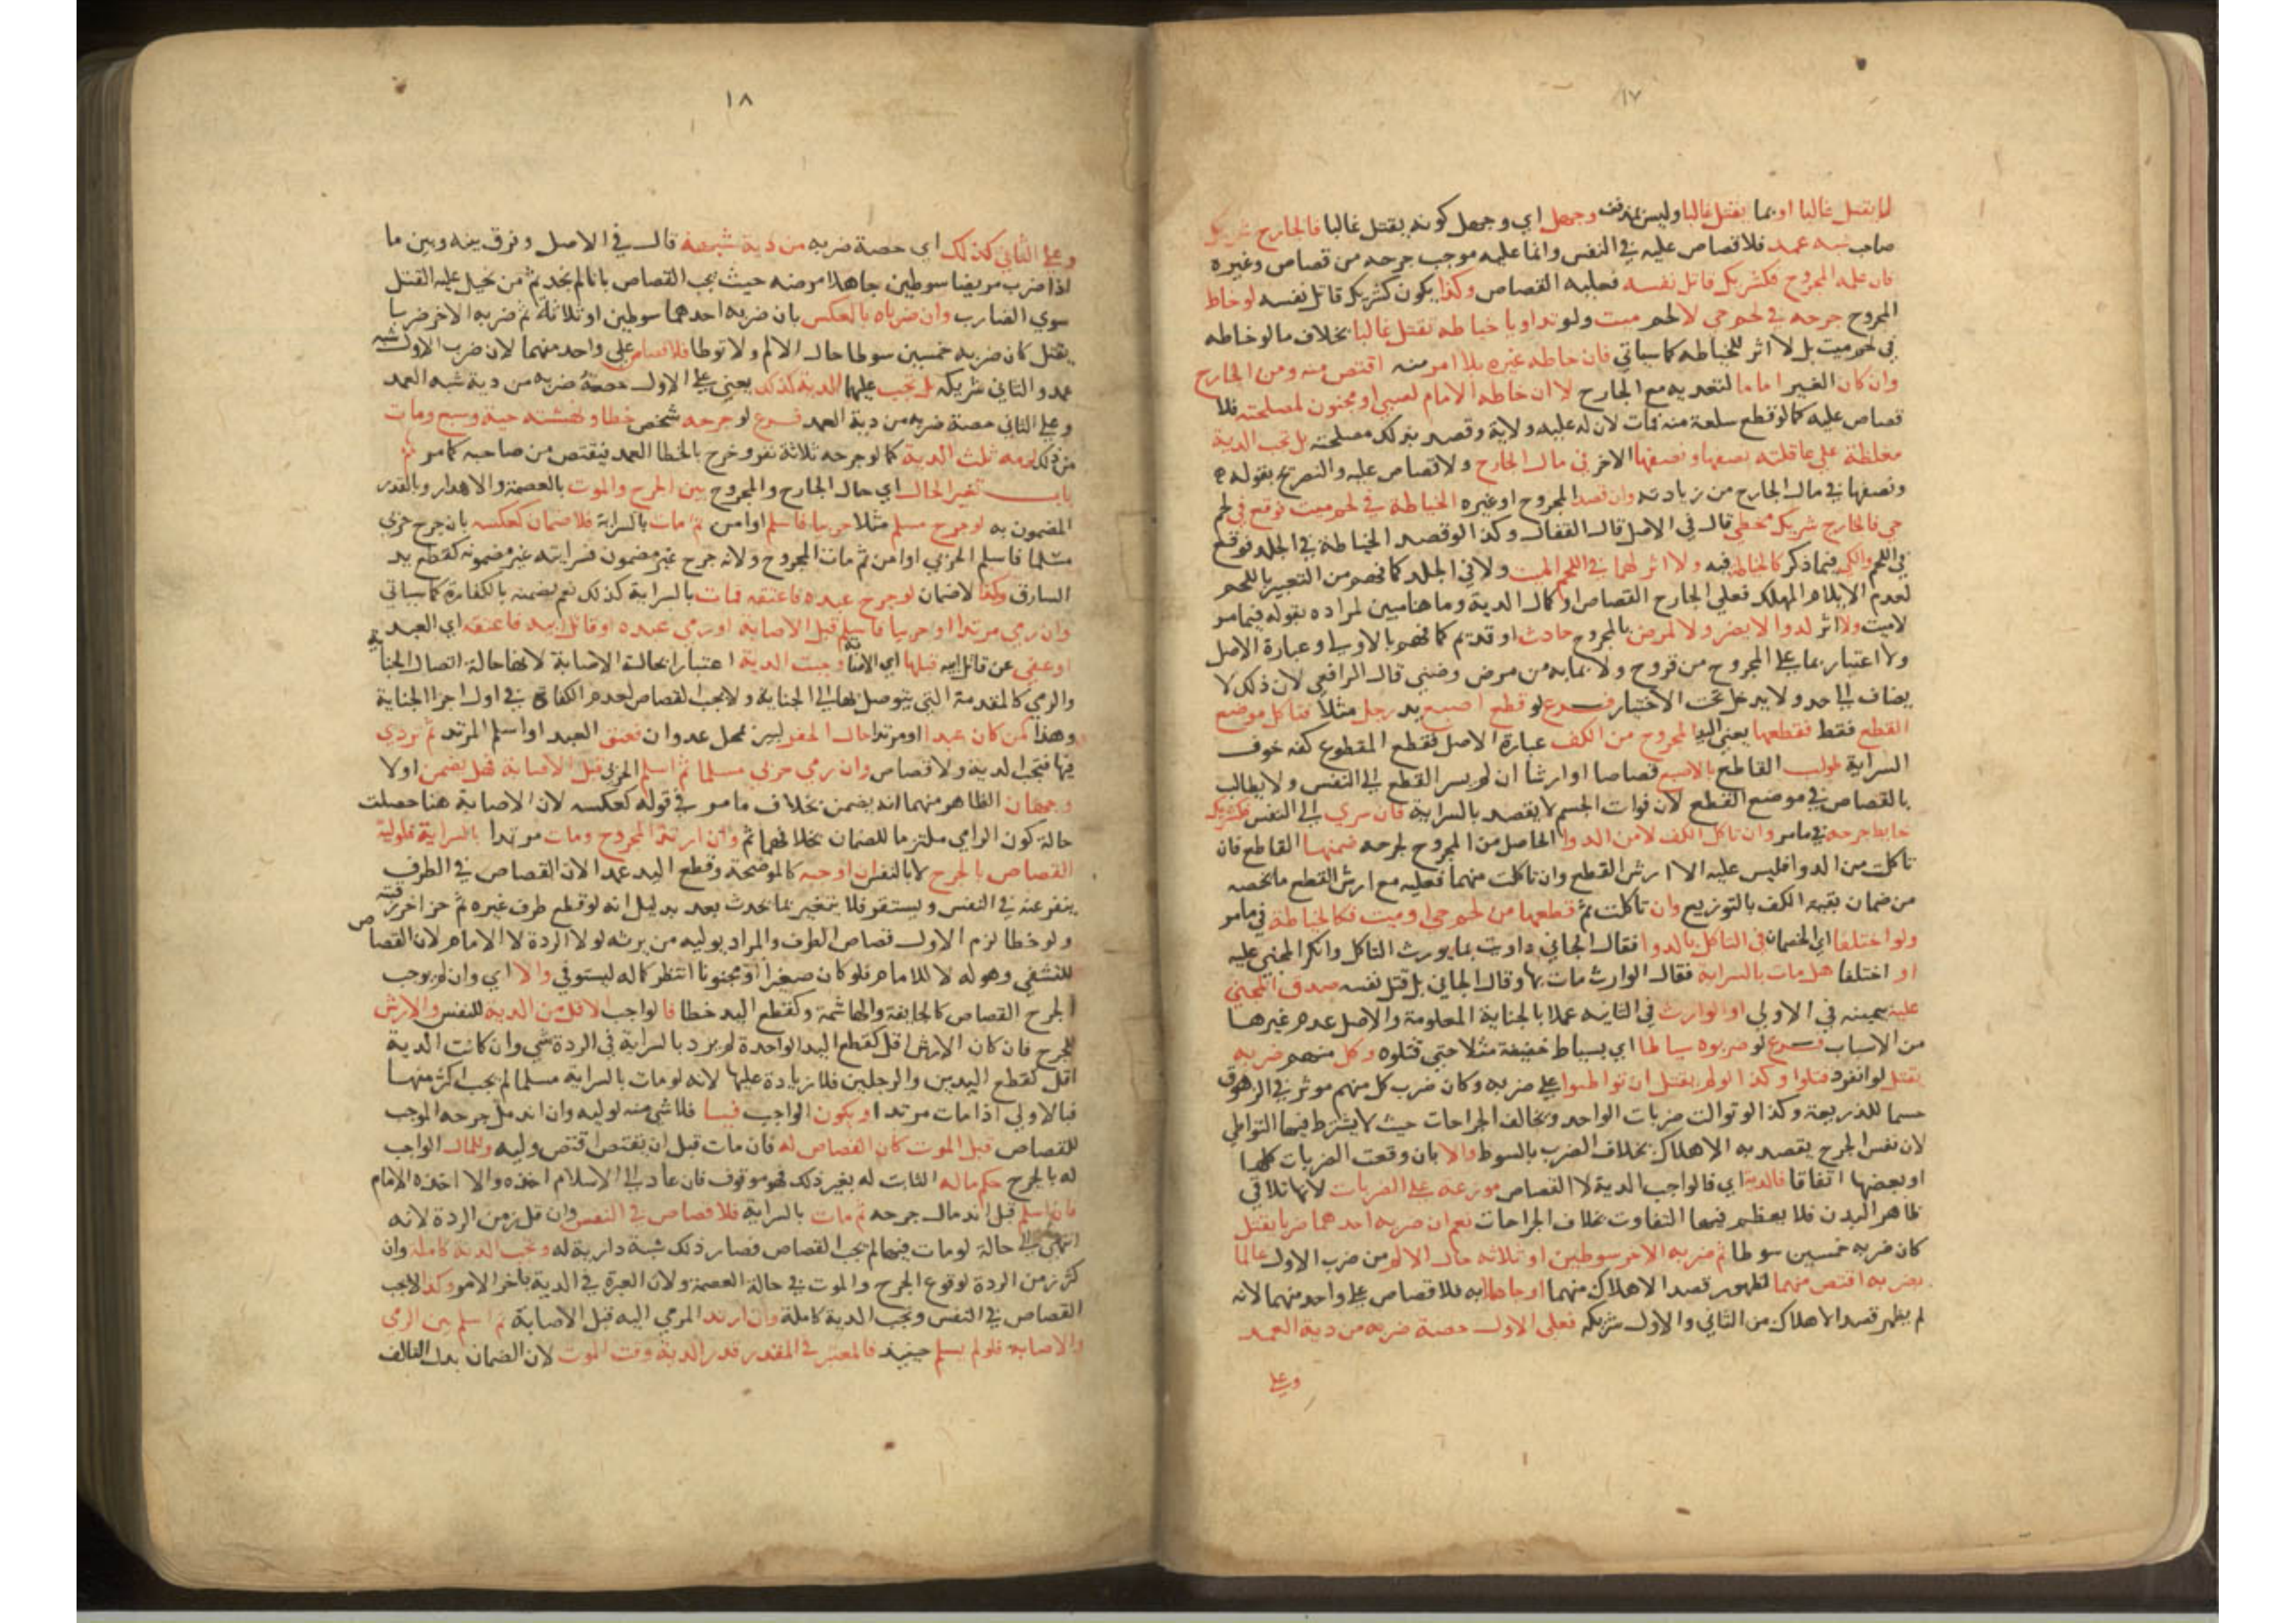 ١٧
لا يقتل غالبا او بما يقتل غالبا وليس بمذفف وجهل اي وجهل كونه يقتل غالبا فالجارح شريك
صاحب شبه عمد فلا قصاص عليه في النفس وانما عليه موجب جرحه من قصاص وغيره
فان علمه المجروح فكشريك قاتل نفسه فعليه القصاص وكذا يكون كشريك قاتل نفسه لو خاط
المجروح جرحه في لحم حي لا لحم ميت ولو تداويا خياطة تقتل غالبا بخلاف ما لو خاطه
في لحم ميت بل لا اثر للخياطة كما سياتي فان خاطه غيره بلا امر منه اقتص منه ومن الجارح
وان كان الغير اماما لتعديه مع الجارح لا ان خاطه الامام لصبي او مجنون لمصلحته فلا
قصاص عليه كما لو قطع سلعة منه فمات لان له عليه ولاية وقصد بذلك مصلحته بل تجب الدية
مغلظة على عاقلته نصفها ونصفها الاخر في مال الجارح ولا قصاص عليه والتصريح بقوله
ونصفها في مال الجارح من زيادته وان قصد المجروح او غيره الخياطة في لحم ميت فوقع في لحم
حي فالجارح شريك مخطي قال في الاصل قال القفال وكذا لو قصد الخياطة في الجلد فوقع
في اللحم والكي فيما ذكر كالخياطة فيه ولا اثر لهما في اللحم الميت ولا في الجلد كما فهم من التعبير باللحم
لعدم الايلام المهلك فعلى الجارح القصاص او كمال الدية وما هنا مبين لمراده بقوله فيما مر
لا ميت ولا اثر لدوا لا يضر ولا لمرض بالمجروح حادث او قديم كما فهم بالاولى وعبارة الاصل
ولا اعتبار بما على المجروح من قروح ولا بما به من مرض وضنى قال الرافعي لان ذلك لا
يضاف الى احد ولا يدخل تحت الاختيار فرع لو قطع اصبع يد رجل مثلا فتاكل موضع
القطع فقط فقطعها يعني اليد المجروح من الكف عبارة الاصل فقطع المقطوع كفه خوف
السراية طولب القاطع بالاصبع قصاصا او ارشا ان لم يسر القطع الى النفس ولا يطالب
بالقصاص في موضع القطع لان فوات الجسم لا يقصد بالسراية فان سري الى النفس فكشريك
خايط جرحه فيما مر وان تاكل الكف لا من الدوا الحاصل من المجروح لجرحه ضمنها القاطع فان
تاكلت من الدوا فليس عليه الا ارش القطع وان تاكلت منهما فعليه مع ارش القطع ما يخصه
من ضمان بقية الكف بالتوزيع وان تاكلت ثم قطعها من لحم حي او ميت فكالخياطة فيما مر
ولو اختلفا اي الخصمان في التاكل بالدوا فقال الجاني داويت بما يورث التاكل وانكر المجني عليه
او اختلفا هل مات بالسراية فقال الوارث مات بها وقال الجاني بل قتل نفسه صدق المجني
عليه بيمينه في الاولى او الوارث في الثانيه عملا بالجناية المعلومة والاصل عدم غيرها
من الاسباب فرع لو ضربوه سياطا اي بسياط خفيفة مثلا حتى قتلوه وكل منهم ضربه
يقتل لو انفرد قتلوا وكذا لو لم يقتل ان تواطئوا على ضربه وكان ضرب كل منهم موثر في الزهوق
حسما للذريعة وكذا لو توالت ضربات الواحد ويخالف الجراحات حيث لا يشترط فيها التواطي
لان نفس الجرح يقصد به الاهلاك بخلاف الضرب بالسوط والا بان وقعت الضربات كلها
او بعضها اتفاقا فالدية اي فالواجب الدية لا القصاص موزعة على الضربات لانها تلاقي
ظاهر البدن فلا يعظم فيها التفاوت بخلاف الجراحات نعم ان ضربه احدهما ضربا يقتل
كان ضربه خمسين سوطا ثم ضربه الاخر سوطين او ثلاثه حال الالم من ضرب الاول عالما
بضربه اقتص منهما لظهور قصد الاهلاك منهما او جاهلا به فلا قصاص على واحد منهما لانه
لم يظهر قصد الاهلاك من الثاني والاول شريكه فعلى الاول حصة ضربه من دية العمد
وعلى
١٨
وعلى الثاني كذلك اي حصة ضربه من دية شبهه قال في الاصل وفرق بينه وبين ما
اذا ضرب مريضا سوطين جاهلا مرضه حيث يجب القصاص بانا لم نجد ثم من نحيل عليه القتل
سوي الضارب وان ضرباه بالعكس بان ضربه احدهما سوطين او ثلاثة ثم ضربه الاخر ضربا
يقتل كان ضربه خمسين سوطا حال الالم ولا تواطا فلا قصاص على واحد منهما لان ضرب الاول شبه
عمد والثاني شريكه بل تجب عليهما الدية كذلك يعني على الاول حصة ضربه من دية شبه العمد
وعلى الثاني حصة ضربه من دية العمد فرع لو جرحه شخص خطا ونهشته حية وسبع ومات
من ذلك لزمه ثلث الدية كما لو جرحه ثلاثة نفر وخرج بالخطا العمد فيقتص من صاحبه كما مر ثم
باب تغير الحال اي حال الجارح والمجروح بين الجرح والموت بالعصمة والاهدار وبالقدر
المضمون به لو جرح مسلم مثلا حربيا فاسلم او امن ثم مات بالسراية فلا ضمان كعكسه بان جرح حربي
مسلما فاسلم الحربي او امن ثم مات المجروح ولانه جرح غير مضمون فسرايته غير مضمونه كقطع يد
السارق وكذا لا ضمان لو جرح عبده فاعتقه فمات بالسراية كذلك نعم يضمنه بالكفارة كما سياتي
وان رمي مرتدا او حربيا فاسلم قبل الاصابة او رمى عبده او قاتل ابيه فاعتقه اي العبد
او عفى عن قاتل ابيه قبلها اي الاصابة وجبت الدية اعتبارا بحالة الاصابة لانها حالة اتصال الجناية
والرمي كالمقدمة التي يتوصل بها الى الجناية ولا يجب القصاص لعدم الكفاة في اول اجزا الجناية
وهذا كمن كان عبدا او مرتدا حال الحفر لبير بمحل عدوان فعتق العبد او اسلم المرتد ثم تردي
فيها فتجب الدية ولا قصاص وان رمى حربي مسلما ثم اسلم الحربي قبل الاصابة فهل يضمن اولا
وجهان الظاهر منهما انه يضمن بخلاف ما مر في قوله كعكسه لان الاصابة هنا حصلت
حالة كون الرامي ملتزما للضمان بخلافها ثم وان ارتد المجروح ومات مرتدا بالسراية فلوليه
القصاص بالجرح لا بالنفس ان اوجبه كالموضحة وقطع اليد عمدا لان القصاص في الطرف
ينفرد عنه في النفس ويستقر فلا يتغير بما يحدث بعد بدليل انه لو قطع طرف غيره ثم حز اخر رقبته
ولو خطا لزم الاول قصاص الطرف والمراد بوليه من يرثه لولا الردة لا الامام لان القصاص
للتشفي وهو له لا للامام فلو كان صغيرا او مجنونا انتظر كماله ليستوفي والا اي وان لم يوجب
الجرح القصاص كالجايفة والهاشمة وكقطع اليد خطا فالواجب الاقل من الدية للنفس والارش
للجرح فان كان الارش اقل كقطع اليد الواحدة لم يزد بالسراية في الردة شي وان كانت الدية
اقل كقطع اليدين والرجلين فلا زيادة عليها لانه لو مات بالسراية مسلما لم يجب اكثر منها
فبالاولى اذا مات مرتدا ويكون الواجب فيسا فلا شي منه لوليه وان اندمل جرحه الموجب
للقصاص قبل الموت كان القصاص له فان مات قبل ان يقتص اقتص وليه وللمال الواجب
له بالجرح حكم ماله الثابت له بغير ذلك فهو موقوف فان عاد الى الاسلام اخذه والا اخذه الامام
فان اسلم قبل اندمال جرحه ثم مات بالسراية فلا قصاص في النفس وان قل زمن الردة لانه
انتهى الى حالة لو مات فيها لم يجب القصاص فصار ذلك شبة دارية له وتجب الدية كاملة وان
كثر زمن الردة لوقوع الجرح والموت في حالة العصمة ولان العبرة في الدية باخر الامر وكذا لا يجب
القصاص في النفس وتجب الدية كاملة وان ارتد المرمي اليه قبل الاصابة ثم اسلم بين الرمي
والاصابه فلو لم يسلم حينيذ فالمعتبر في المقدر قدر الدية وقت الموت لان الضمان بدل التالف